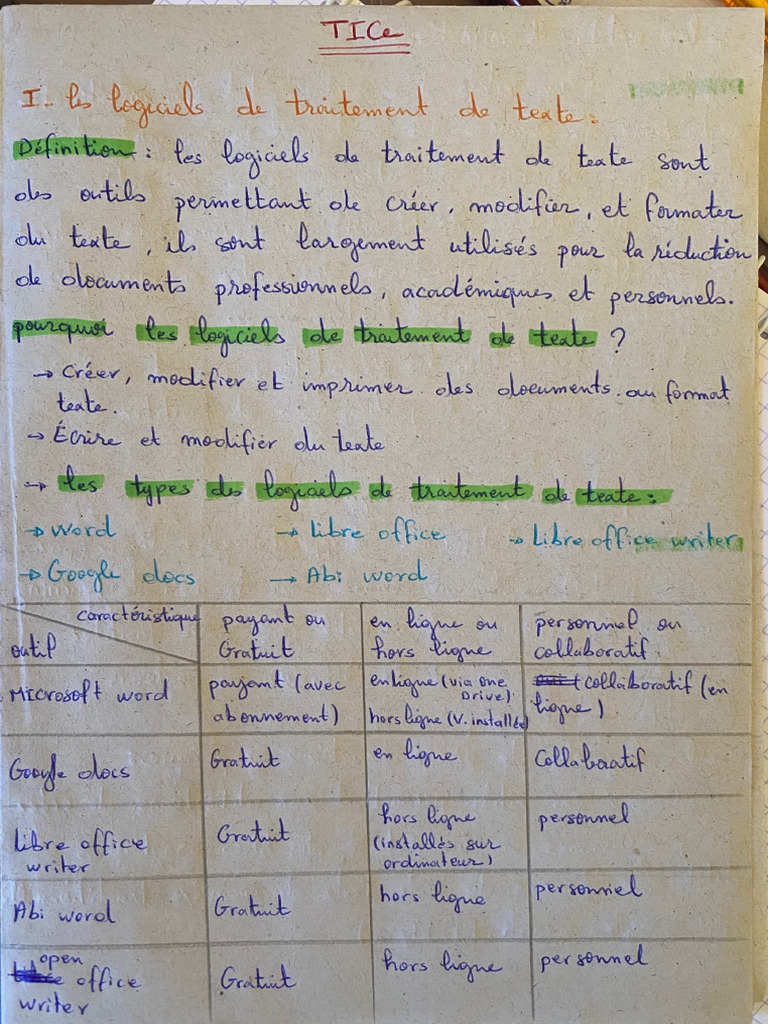 TICe
I - les logiciels de traitement de texte :
Définition : les logiciels de traitement de texte sont
des outils permettant de créer, modifier, et formater
du texte, ils sont largement utilisés pour la réduction
de documents professionnels, académiques et personnels.
pourquoi les logiciels de traitement de texte ?
→ Créer, modifier et imprimer des documents. au format
texte.
→ Écrire et modifier du texte
→ les types des logiciels de traitement de texte :
→ word → libre office → Libre office writer
→ Google docs → Abi word
caractéristique payant ou en ligne ou personnel ou
outil Gratuit hors ligne collaboratif.
Microsoft word payant (avec abonnement) en ligne (via one Drive). hors ligne (V. installée) (collaboratif (en ligne)
Google docs Gratuit en ligne Collabaatif
Libre office writer Gratuit hors ligne (installés sur ordinateur) personnel
Abi word Gratuit hors ligne personnel
open office writer Gratuit hors ligne personnel